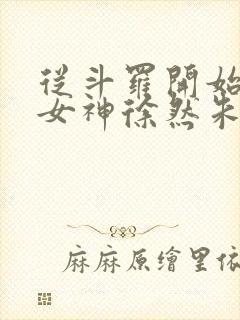 從斗羅開始
女神徐然朱
麻麻原繪里依